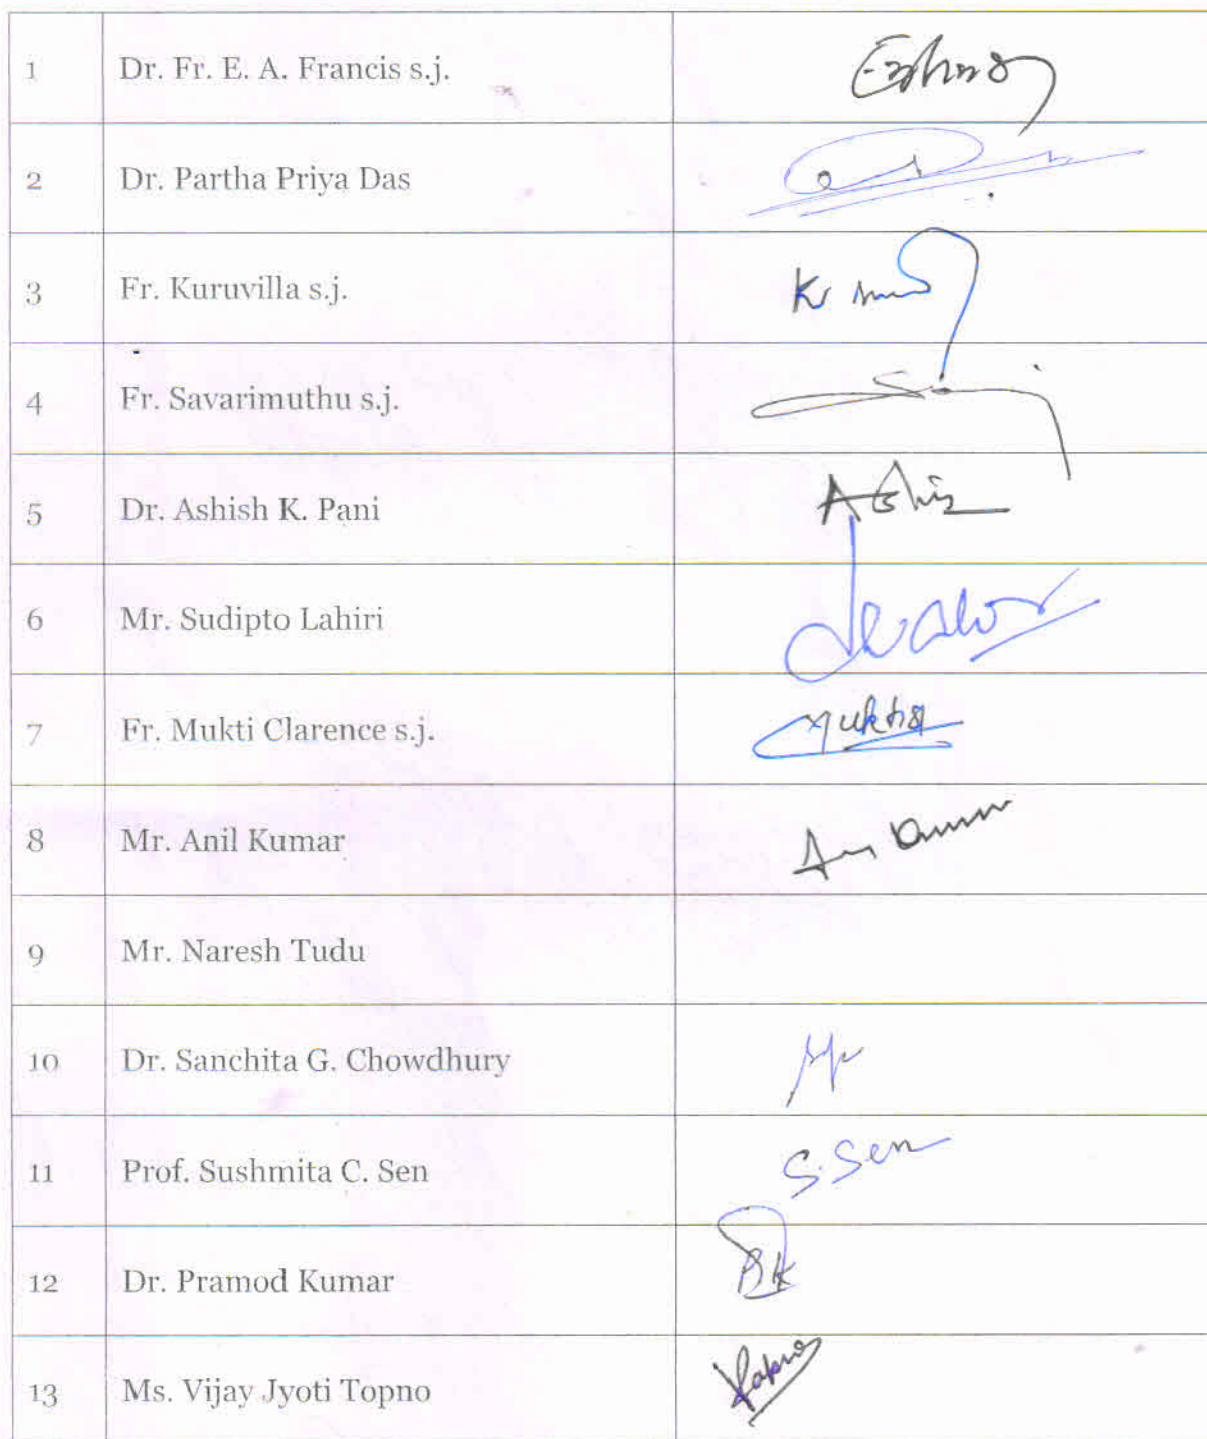 1 Dr. Fr. E. A. Francis s.j.
2 Dr. Partha Priya Das
3 Fr. Kuruvilla s.j.
4 Fr. Savarimuthu s.j.
5 Dr. Ashish K. Pani Ashis
6 Mr. Sudipto Lahiri
7 Fr. Mukti Clarence s.j. Mukti
8 Mr. Anil Kumar
9 Mr. Naresh Tudu
10 Dr. Sanchita G. Chowdhury
11 Prof. Sushmita C. Sen S. Sen
12 Dr. Pramod Kumar
13 Ms. Vijay Jyoti Topno